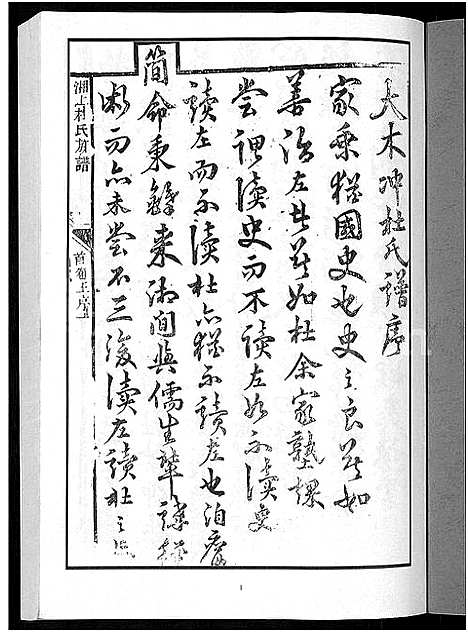 大木冲杜氏譜序
家乘猶國史也史之良莫如
善治左者莫如杜余家塾課
嘗謂讀史而不讀左如不讀史
讀左而不讀杜亦猶不讀左也洎膺
簡命秉鐸來湘間與儒生輩講
斷而亦未嘗不三復讀左讀杜之
湘上杜氏族譜
首卷上序